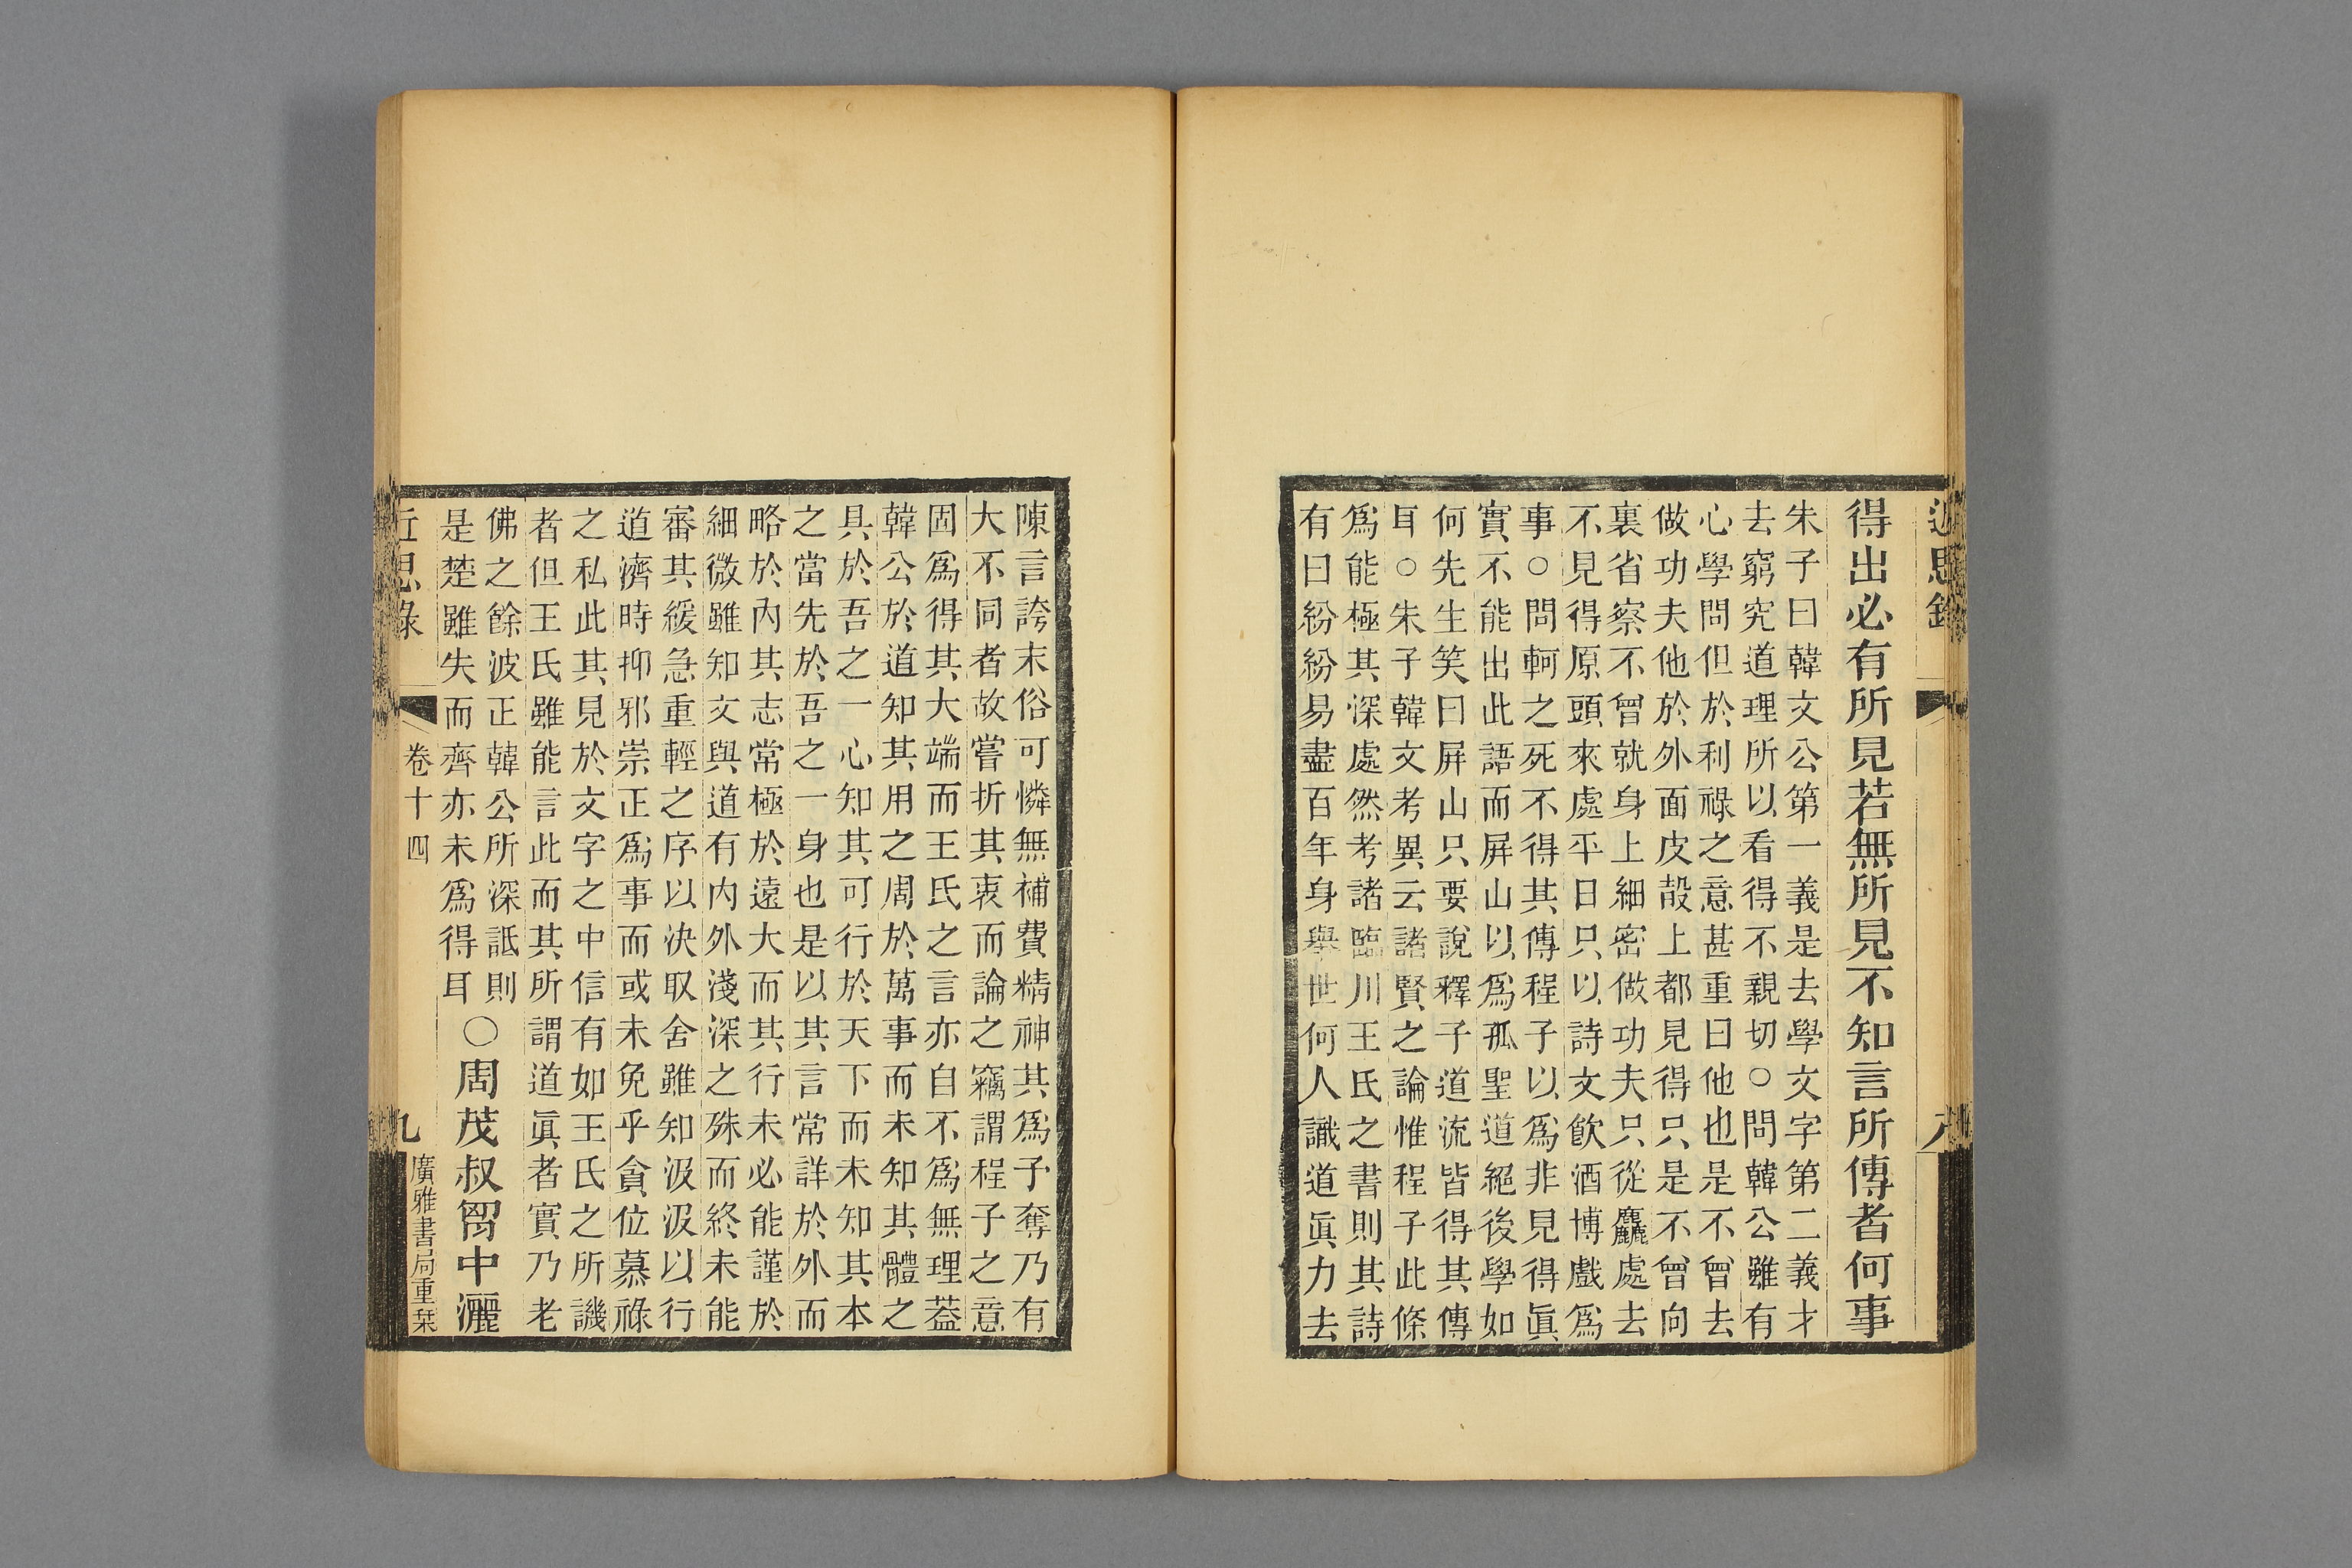 近思錄
八
得出必有所見若無所見不知言所傳者何事
朱子曰韓文公第一義是去學文字第二義才
去窮究道理所以看得不親切○問韓公雖有
心學問但於利祿之意甚重曰他也是不曾去
做功夫他於外面皮殼上都見得只是不曾向
裏省察不曾就身上細密做功夫只從麤處去
不見得原頭來處平日只以詩文飲酒博戲爲
事○問軻之死不得其傳程子以爲非見得眞
實不能出此語而屏山以爲孤聖道絕後學如
何先生笑曰屏山只要說釋子道流皆得其傳
耳○朱子韓文考異云諸賢之論惟程子此條
爲能極其深處然考諸臨川王氏之書則其詩
有曰紛紛易盡百年身舉世何人識道眞力去
陳言誇末俗可憐無補費精神其爲予奪乃有
大不同者故嘗折其衷而論之竊謂程子之意
固爲得其大端而王氏之言亦自不爲無理葢
韓公於道知其用之周於萬事而未知其體之
具於吾之一心知其可行於天下而未知其本
之當先於吾之一身也是以其言常詳於外而
略於內其志常極於遠大而其行未必能謹於
細微雖知文與道有內外淺深之殊而終未能
審其緩急重輕之序以決取舍雖知汲汲以行
道濟時抑邪崇正爲事而或未免乎貪位慕祿
之私此其見於文字之中信有如王氏之所譏
者但王氏雖能言此而其所謂道眞者實乃老
佛之餘波正韓公所深詆則
是楚雖失而齊亦未爲得耳
○周茂叔胷中灑
近思錄
卷十四
九
廣雅書局重栞